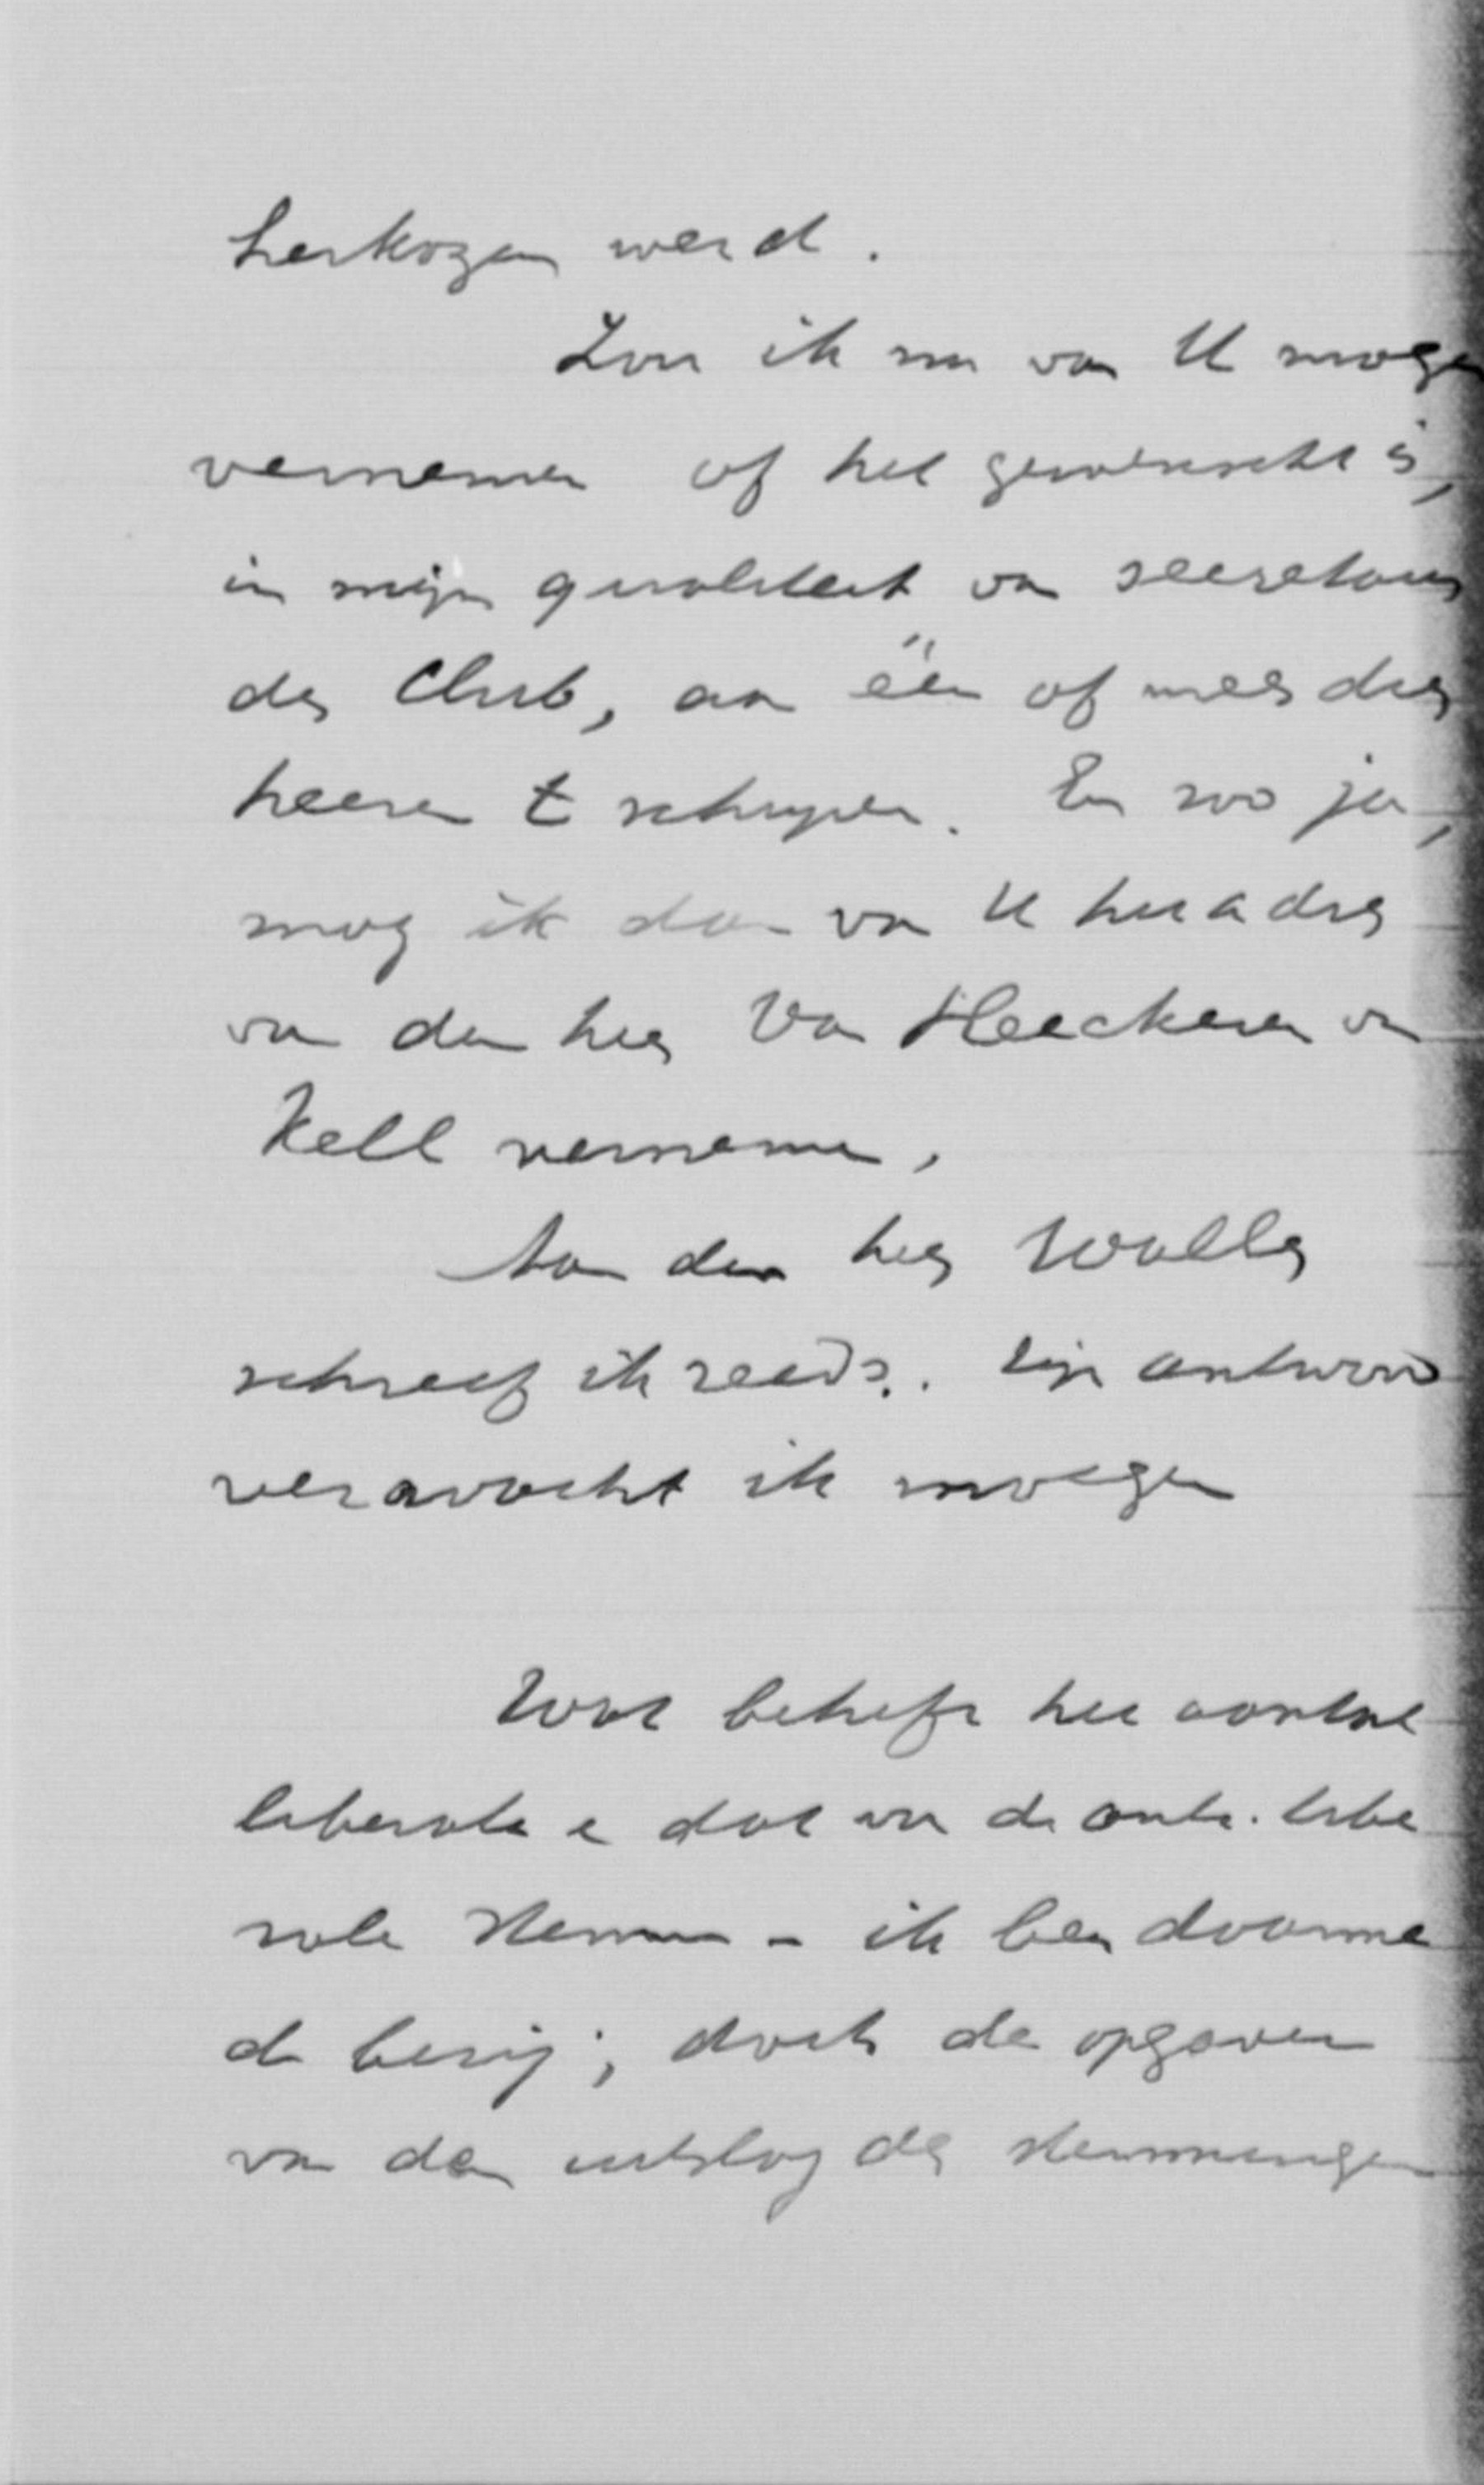 herkozen werd.
Zou ik nu van U mogen
vernemen of het gewenscht is,
in mijn qualiteit van secretaris
der Club, aan één of meer dier
heeren te schrijven. En zoo ja,
mag ik dan van U het adres
van den heer Van Heeckeren van
Kell vernemen.
Aan den heer Waller
schreef ik reeds. Zijn antwoord
verwacht ik morgen
Wat betreft het aantal
liberale en dat van de anti-libe
rale stemmen - ik ben daarme
de bezig; doch de opgaven
van den uitslag der stemmingen